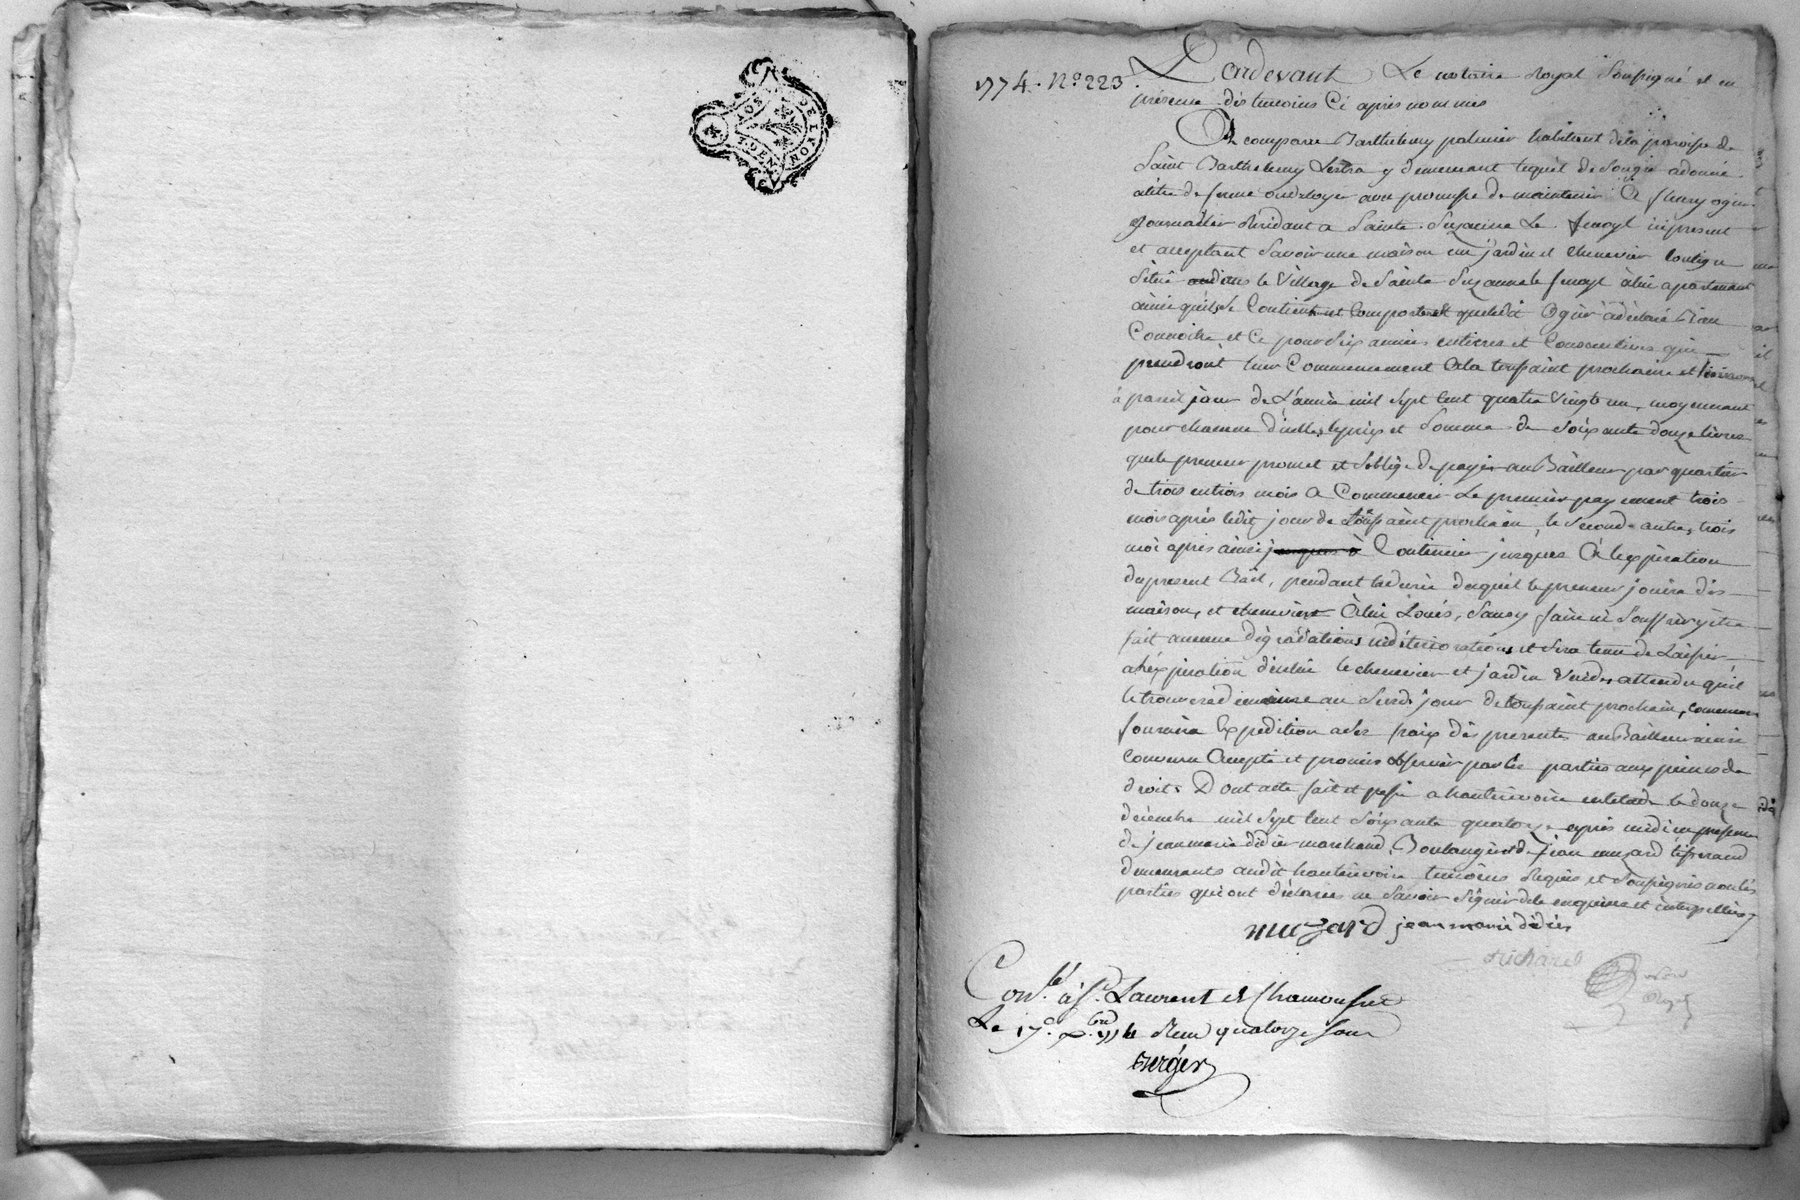 GEN DE LYON
1774. N.° 223.
Pardevant Le notaire Royal Soussigné et en
présence dés temoins Ci aprés nommés
Est comparu Barthelemy palmier habitant dela paroisse de
Saint Barthelemy Lestra y demeurant lequel de Son gré a donné
atitre de ferme ou de loyer avec promesse de maintenir A fleury ogier
Journallier Residant a Sainte Suzanne Le fenoyl icy present
et acceptant Savoir une maison un jardin et chenevier Contigu
Situé dans le Village de Sainte Suzanne le fenoyl à lui apartenant
ainsi quils Se Contient et Comportent que ledit Ogier à déclaré Bien
Connoitre et Ce pour Six années entieres et Consecutives qui
prendront leur Commencement Ala toussaint prochaine et finiront
à pareil jour de L'année mil Sept Cent quatre Vingt un, moyennant
pour chacune d'icelles le prix et Somme de Soixante douze livres
que le preneur promet et Soblige de payer au Bailleur par quartier
de trois en trois mois a Commencer Le premier payement trois
mois aprés ledit jour de toussaint prochain, le Second autre, trois
moi aprés ainsi jusques à Continuer jusques A lexpiration
du present Bail, pendant la durée duquel le preneur jouira dés
maison, et chenevier à lui Loués, Sans y faire ni Souffrir y être
fait aucune dégradations ni détériorations et Sera tenu de Laisser
a l'expiration d'icelui le chenevier et jardin Vuides attendu quil
le trouvera de même au Susdit jour de toussaint prochain, comme
fournira Expedition a Ses fraix dés presentes au Bailleur ainsi
Convenu Accepté et promis obServer par les parties aux peines de
droit. Dont acte fait et passé a hauterivoire en letude le douze
décembre mil Sept Cent Soixante quatorze aprés midi en presence
de jean marie didier marchand Boulanger et de jean muzard tisserand
demeurants audit hauterivoire temoins Requis et Soussignés non lés
parties qui ont déclarées ne Savoir Signer de ce enquises et interpellées
muzard jean marie didier
richard
Con.lé à S.t Laurent de Chamousset
Le 17.e x.bre 1774 Reçu quatorze Sous
Berger